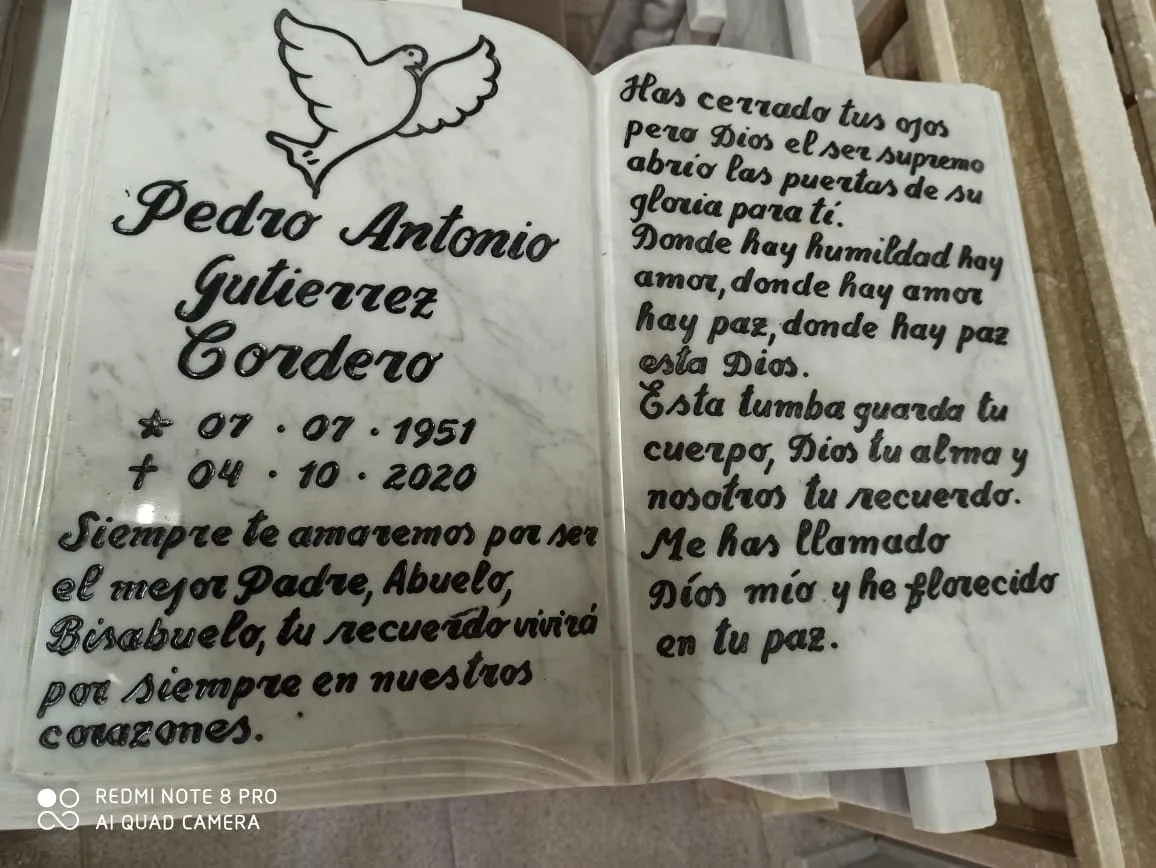 Pedro Antonio
Gutierrez
Cordero
07 · 07 · 1951
† 04 · 10 · 2020
Siempre te amaremos por ser
el mejor Padre, Abuelo,
Bisabuelo, tu recuerdo vivirá
por siempre en nuestros
corazones.
Has cerrado tus ojos
pero Dios el ser supremo
abrio las puertas de su
gloria para tí.
Donde hay humildad hay
amor, donde hay amor
hay paz, donde hay paz
esta Dios.
Esta tumba guarda tu
cuerpo, Dios tu alma y
nosotros tu recuerdo.
Me has llamado
Díos mío y he florecido
en tu paz.
REDMI NOTE 8 PRO
AI QUAD CAMERA